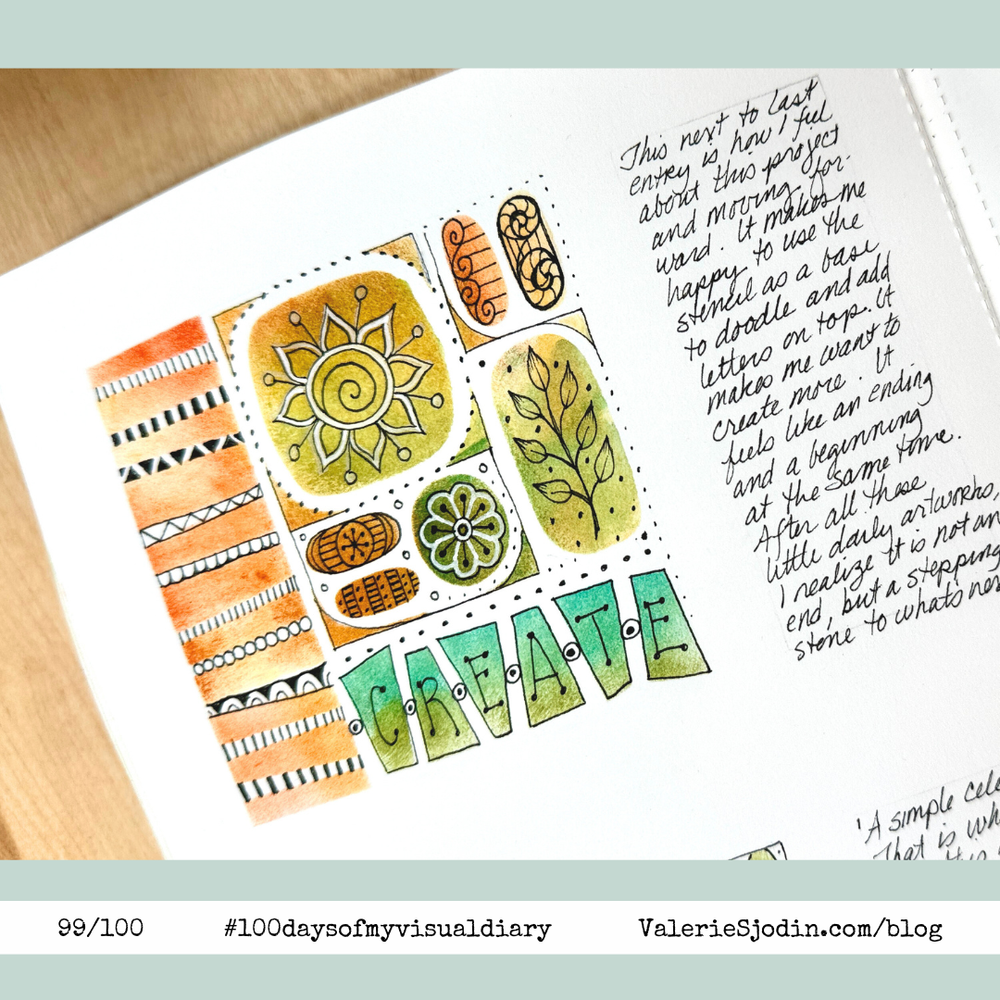 This next to last
entry is how I feel
about this project
and moving for-
ward. It makes me
happy to use the
stencil as a base
to doodle and add
letters on top. It
makes me want to
create more. It
feels like an ending
and a beginning
at the same time.
After all these
little daily artworks,
I realize it is not an
end, but a stepping
stone to whats
CREATE
'A simple
That is
99/100 #100daysofmyvisualdiary ValerieSjodin.com/blog